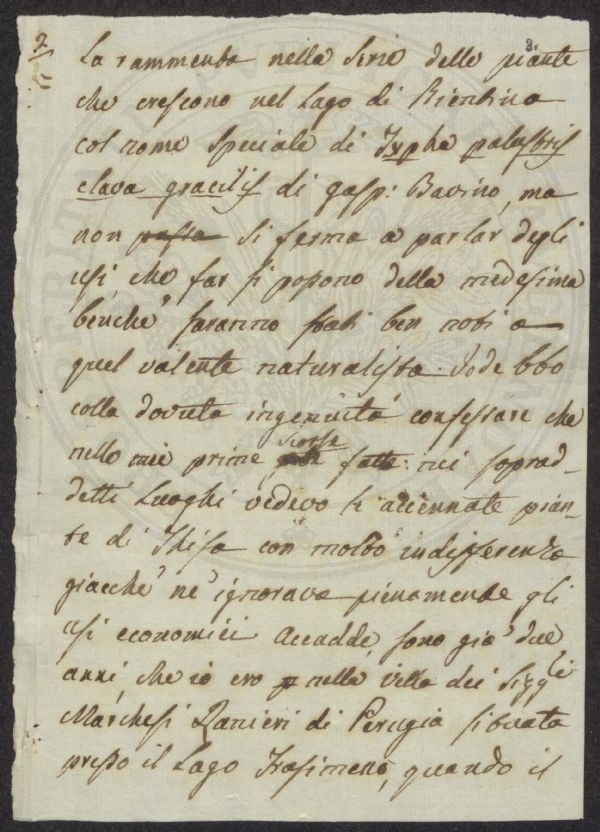 2
La rammenta nella serie delle piante
che crescono nel Lago di Bientina
col nome speciale di Typha palustris
clava gracilis di Gasp: Bavino, ma
non si ferma a parlar degli
usi, che far si possono della medesima
benche saranno stati ben noti a
quel valente naturalista. Io debbo
colla dovuta ingenuità confessare che
nelle mie prime scorse fatte nei soprad-
detti Luoghi vedevo le accennate pian-
te di Thifa con molta indifferenza
giacche ne ignorava pienamente gli
usi economici. Accadde, sono già due
anni, che io ero nella villa dei Sigg.ri
Marchesi Ranieri di Perugia situata
presso il Lago Trasimeno, quando il